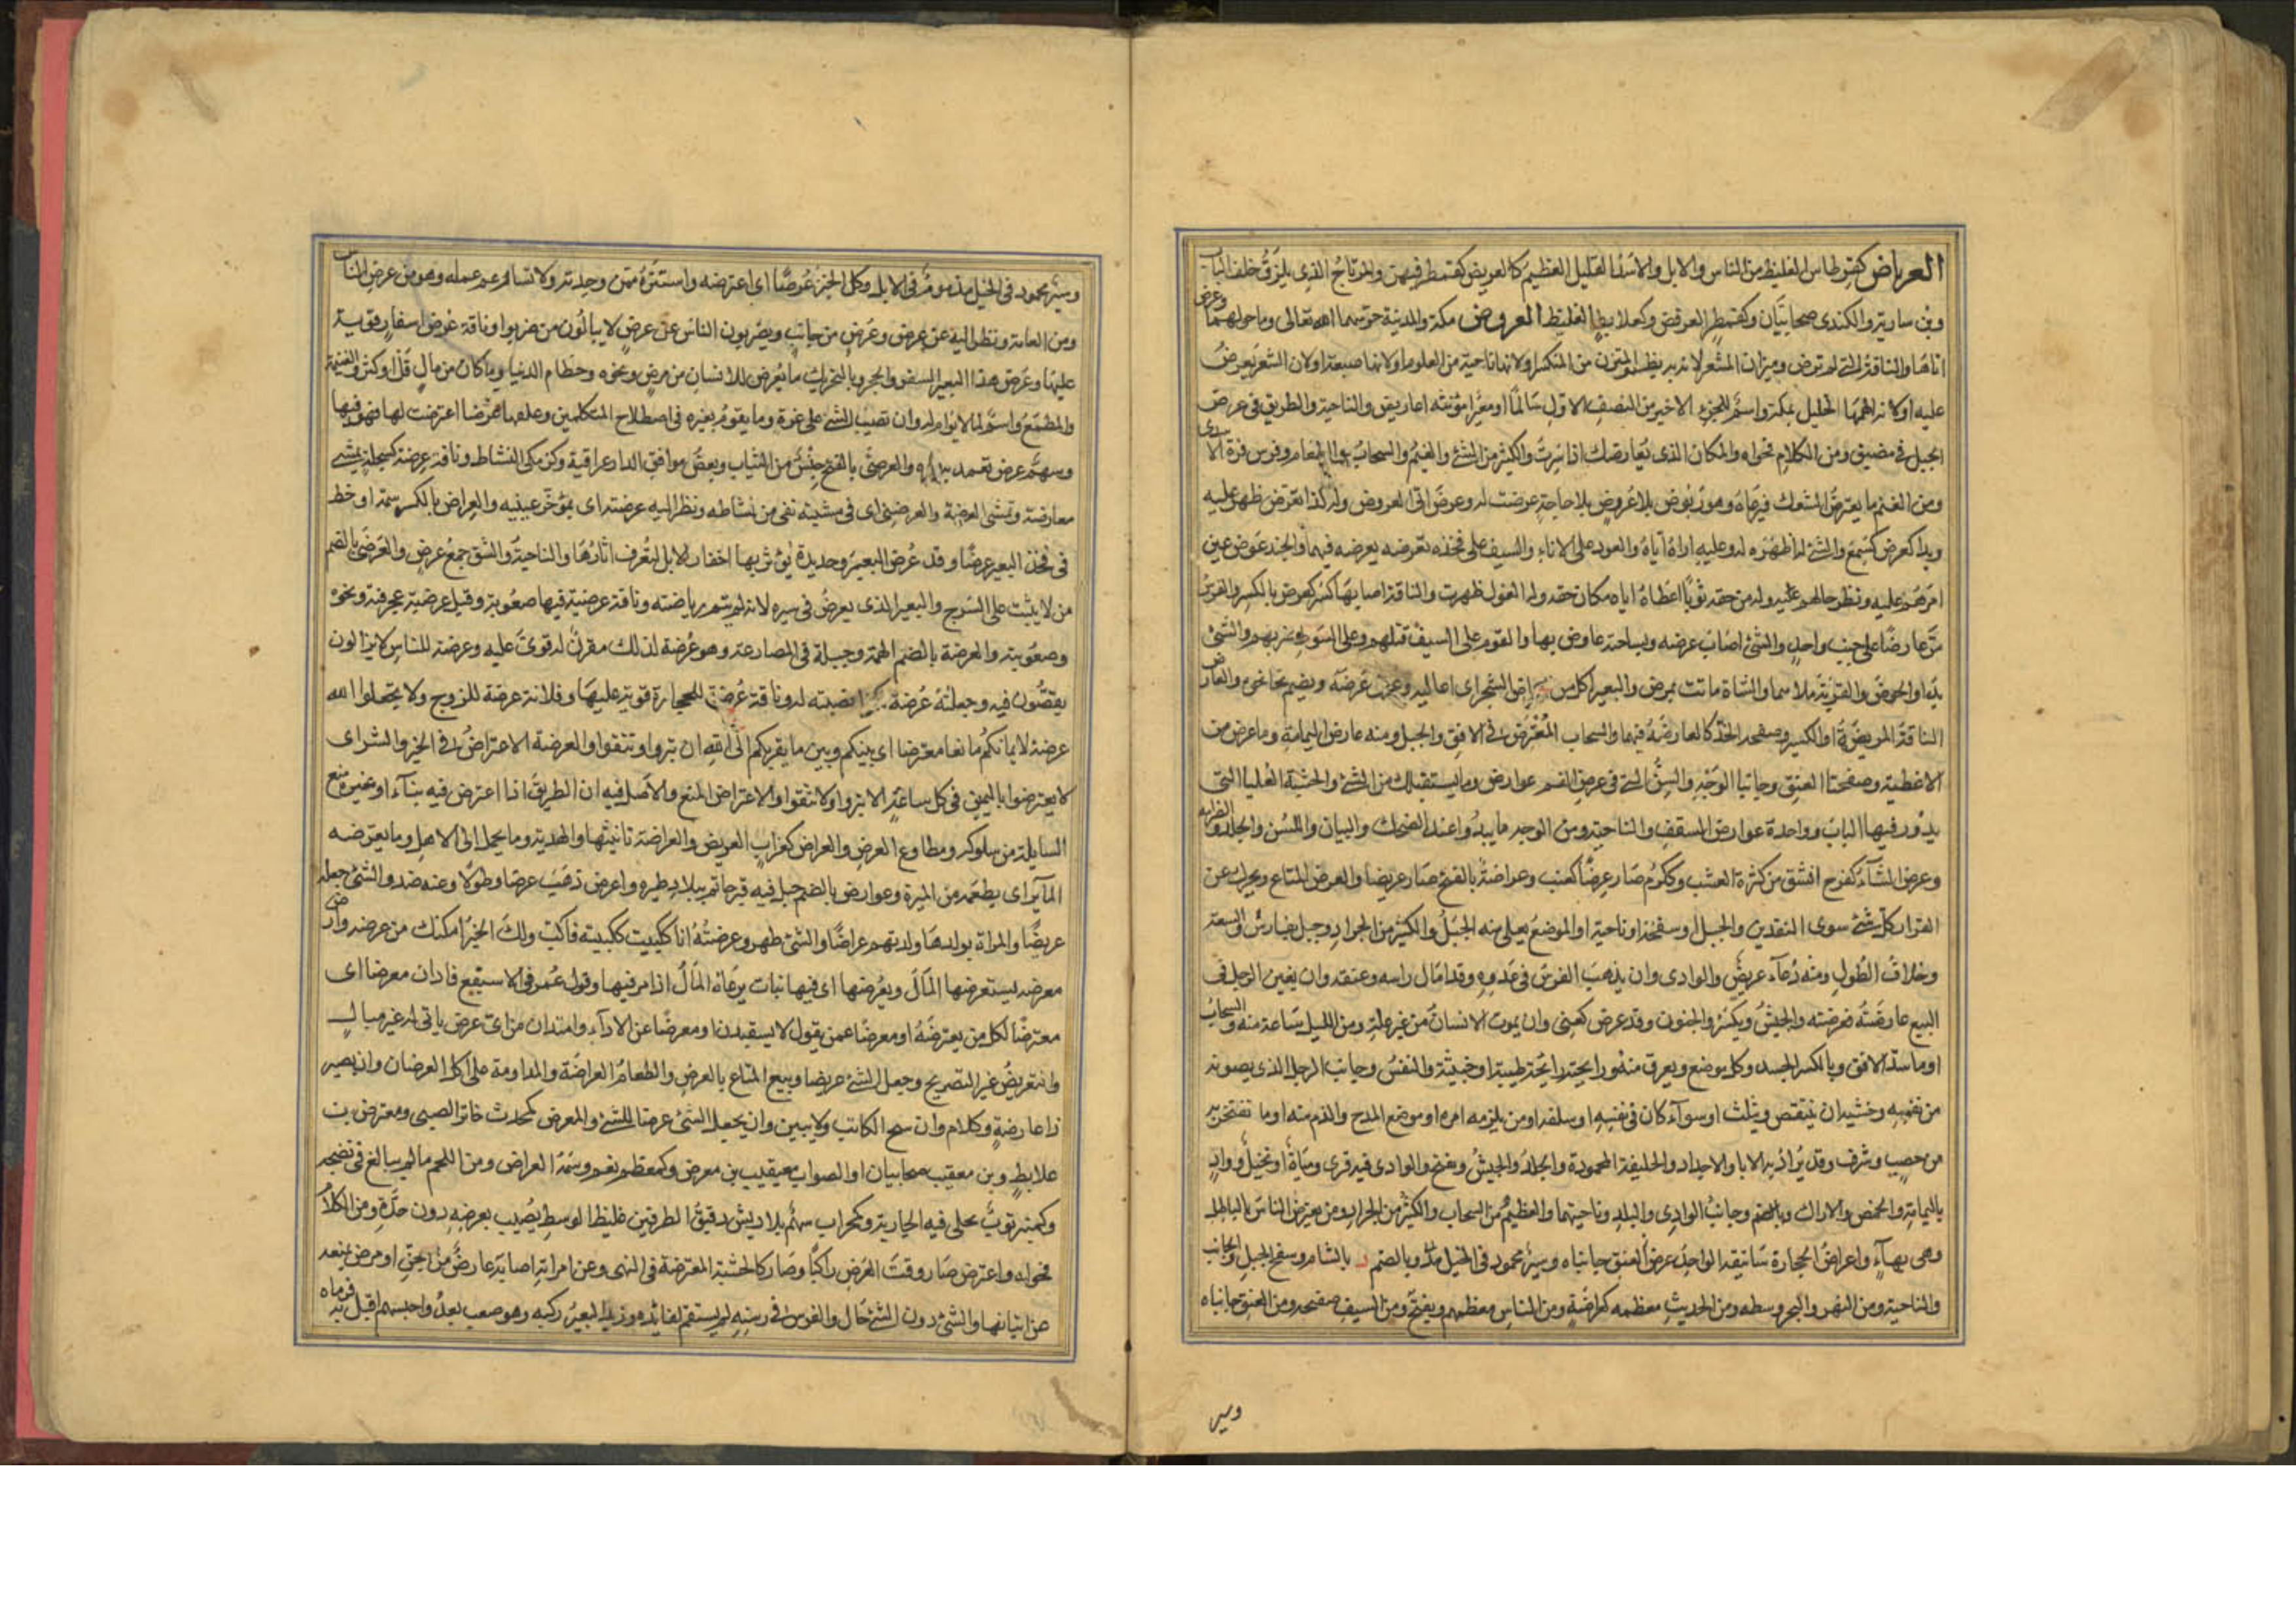 العرباض كقرطاس الغليظ من الناس والابل والاسد الثقيل العظيم كالعربض كقمطر فيهن والمرتاج الذى يلزق خلف الباب
وبن سارية والكندى صحابيان وكقمطر العرقض وكعلابط الغليظ العروض مكة والمدينة حرسهما الله تعالى وما حولهما وعرض
اتاها والناقة التى لم ترض وميزان الشعر لانه به يظهر المتزن من المنكسر او لانها ناحية من العلوم او لانها صعبة او لان الشعر يعرض
عليه او لانه الهمها الخليل بمكة واسم للجزء الاخير من النصف الاول سالما او مغيرا مؤنثه اعاريض والناحية والطريق فى عرض
الجبل فى مضيق ومن الكلام فحواه والمكان الذى يعارضك اذا سرت والكثير من الشئ والغيم والسحاب والطعام وفرس قرة الاسدى
ومن الغنم ما يعترض الشوك فيرعاه وهو ربوض بلا عروض بلا حاجة عرضت له وعرض اتى العروض وله كذا تعرض ظهر عليه
وبدا كعرض كسمع والشئ له اظهره له وعليه اراه اياه والعود على الاناء والسيف على فخذه تعرضه يعرضه فيهما والجند عرض عين
امرهم عليه ونظر حالهم عليه وله من حقه ثوبا اعطاه اياه مكان حقه وله الغول ظهرت والناقة اصابها كسر كعرض بالكسر والفرس
مر عارضا على جنب واحد والشئ اصاب عرضه وبسلحته عارض بها والقوم على السيف قتلهم وعلى السوط ضربهم والشئ
بدا والحوض والقربة ملاهما والشاة ماتت بمرض والبعير اكل من اعراض الشجر اى اعاليه وعرض عرضه ويضم نحا نحوه والعارض
الناقة المريضة او الكسير وصفحة الخد كالعارضة فيهما والسحاب المعترض فى الافق والجبل ومنه عارض اليمامة وما عرض من
الاعطية وصفحتا العنق وجانبا الوجه والسن التى فى عرض الفم عوارض وما يستقبلك من الشئ والخشبة العليا التى
يدور فيها الباب وواحدة عوارض السقف والناحية ومن الوجه ما يبدو عند الضحك والبيان واللسن والجلد والصرامة
وعرض الشاء كفرح انشق من كثرة العشب وككرم صار عريضا كعنب وعراضة بالفتح صار عريضا والعرض المتاع ويحرك عن
القزاز كل شئ سوى النقدين والجبل او سفحه او ناحيته او الموضع يعلى منه الجبل والكثير من الجراد وجبل بفارس والسعة
وخلاف الطول ومنه دعاء عريض والوادى وان يذهب الفرس فى عدوه وقد امال راسه وعنقه وان يغبن الرجل فى
البيع عارضته فعرضته والجيش ويكسر والجنون وقد عرض كعنى وان يموت الانسان من غير علة ومن الليل ساعة منه والسحاب
او ما سد الافق وبالكسر الجسد وكل موضع يعرق منه ورائحته رائحة طيبة او خبيثة والنفس وجانب الرجل الذى يصونه
من نفسه وحسبه ان ينتقص ويثلب او سواء كان فى نفسه او سلفه او من يلزمه امره او موضع المدح والذم منه او ما يفتخر به
من حسب وشرف وقد يراد به الابا والاجداد والخليقة المحمودة والجلد والجيش ويفتح والوادى فيه قرى ومياه او نخيل وواد
باليمامة والحمض والاراك وبالضم وجانب الوادى والبلد وناحيتهما والعظيم من السحاب والكثير من الجراد ومن يعترض الناس بالباطل
وهى بهاء واعراض الحجارة سانيقه الواحد عرض العنق جانباه وسير محمود فى الخيل مذ وبالضم د بالشام وسفح الجبل والجانب
والناحية ومن النهر والبحر وسطه ومن الحديث معظمه كعراضه ومن الناس معظمهم ويفتح ومن السيف صفحه ومن العنق جانباه
وسير
وسير محمود فى الخيل مذموم فى الابل وكل الجبن عرضا اى اعترضه واشتره ممن وجدته ولا تسال عن عمله وهو من عرض الناس
ومن العامة ونظر اليه عن عرض وعرض من جانب ويضربون الناس عن عرض لا يبالون من ضربوا وناقة عرض اسفار قوية
عليها وعرض هذا البعير السفر والحجر وبالتحريك ما يعرض للانسان من مرض ونحوه وحطام الدنيا وما كان من مال قل او كثر والغنيمة
والمطمع واسم لما لا دوام له وان تصيب الشئ على غرة وما يقوم بغيره فى اصطلاح المتكلمين وعلقها عرضا اعترضت لها فهويها
وسهم عرض تعمد به غيره والعرضى بالفتح جنس من الثياب وبعض مرافق الدار عراقية وكزمكى النشاط وناقة عرضنة كسبحلة يمشى
معارضة وتمشى العرضنة والعرضنى اى فى مشيته بغى من نشاطه ونظر اليه عرضنة اى بمؤخر عينيه والعراض بالكسر سمة او خط
فى فخذ البعير عرضا وقد عرض البعير وحديدة يؤثر بها اخفاف الابل لتعرف اثارها والناحية والشق جمع عرض والعرضى بالضم
من لا يثبت على السرج والبعير الذى يعرض فى سيره لانه لم يتم رياضته وناقة عرضية فيها صعوبة وقيل عرضية عجرفية ونخوة
وصعوبة والعرضة بالضم الهمة وحيلة فى المصارعة وهو عرضة لذلك مقرن له قوى عليه وعرضة للناس لا يزالون
يقعون فيه وجعلته عرضة لكذا نصبته له وناقة عرضة للحجارة قوية عليها وفلانة عرضة للزوج ولا تجعلوا الله
عرضة لايمانكم مانعا معترضا اى بينكم وبين ما يقربكم الى الله ان تبروا وتتقوا والعرضة الاعتراض فى الخير والشر اى
لا يعترضوا باليمين فى كل ساعة الا تبروا ولا تتقوا والاعتراض المنع والاصل فيه ان الطريق اذا اعترض فيه بناء او غيره منع
السابلة من سلوكه ومطاوع العرض والعراض كغراب العريض والعراضة تانيثها والهدية وما يحمل الى الاهل وما يعرضه
المائر اى يطعمه من الميرة وعوارض بالضم جبل فيه قبر حاتم ببلاد طيئ واعرض ذهب عرضا وطولا وعنه صد والشئ جعله
عريضا والمراة بولدها ولدتهم عراضا والشئ ظهر وعرضته انا ككببت ككببته فاكب ولك الخير امكنك من عرضه وارض
معرضة يستعرضها المال ويعرضها اى فيها نبات يرعاه المال اذا مر فيها وقول عمر فى الاسيفع فادان معرضا اى
معترضا لكل من يعترضه او معرضا عمن يقول لا يستدن او معرضا عن الاداء وامتدان من اى عرض ياتى له غير مبال
والتعريض غير التصريح وجعل الشئ عريضا وبيع المتاع بالعرض واطعام العراضة والمداومة على اكل العرضان وان يصير
ذا عارضة وكلام وان يثبج الكاتب ولا يبين وان يجعل الشئ عرضا للشئ والمعرض كمحدث خاتن الصبى ومعرض بن
علابط وبن معيقيب صحابيان او الصواب معيقيب بن معرض وكمعظم نعم وسمه العراض ومن اللحم ما لم يبالغ فى نضجه
وكمنبر ثوب تجلى فيه الجارية وكمحراب سهم بلا ريش دقيق الطرفين غليظ الوسط يصيب بعرضه دون حده ومن الكلام
فحواه واعترض صار وقت العرض راكبا وصار كالخشبة المعترضة فى النهر وعن امراته اصابه عارض من الجن او مرض يمنعه
عن اتيانها والشئ دون الشئ حال والفرس فى رسنه لم يستقم لقائده وزيد البعير ركبه وهو صعب بعد واحسهم اقبل به فرماه